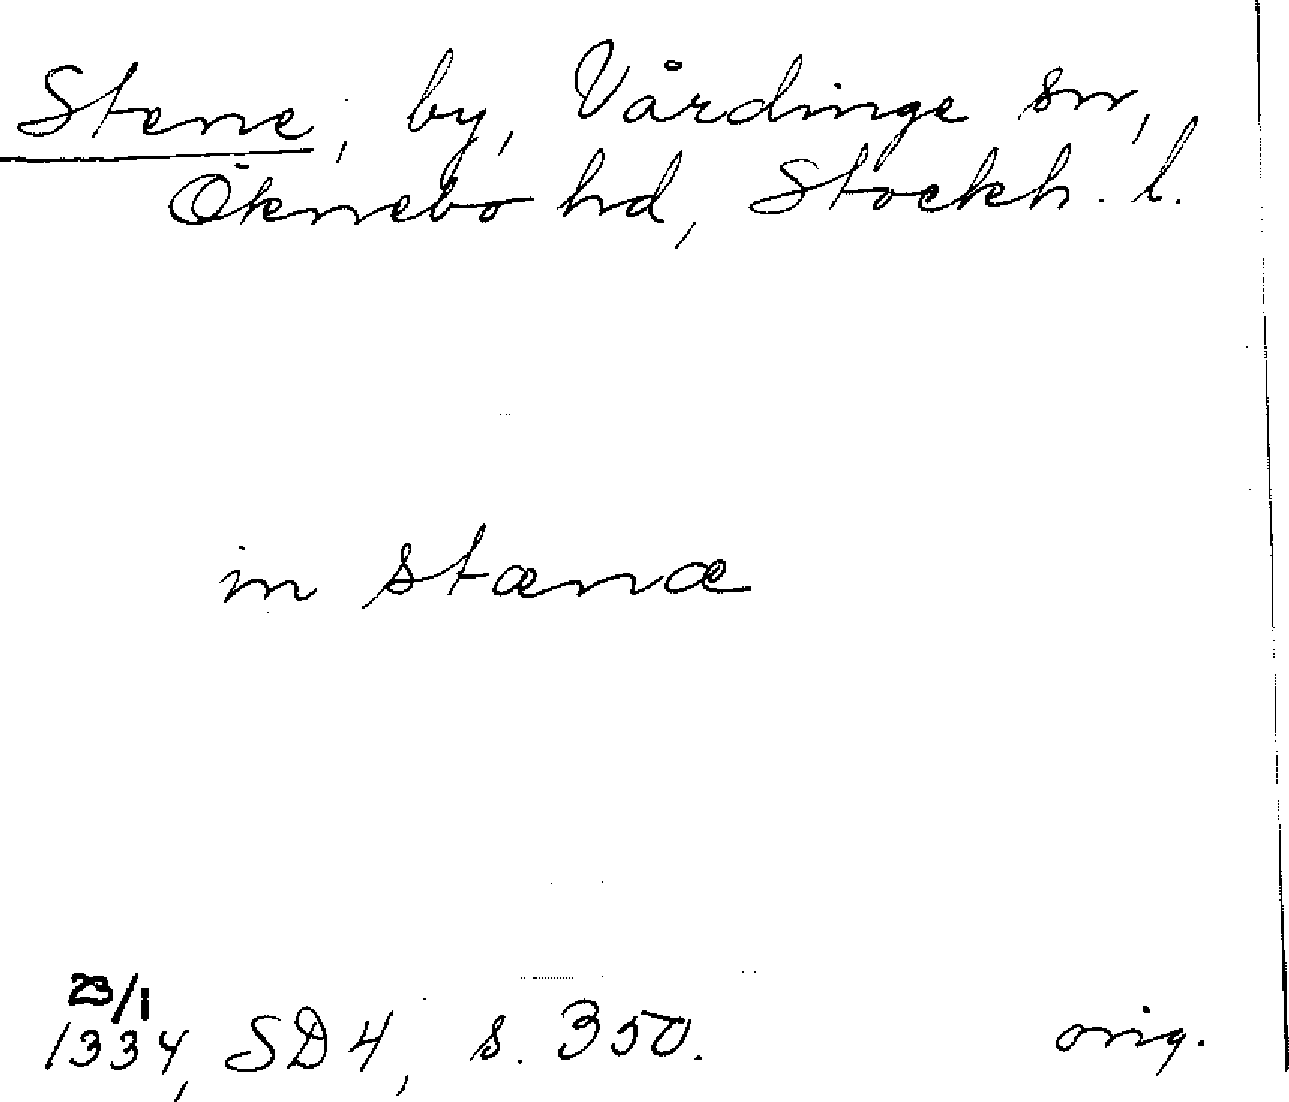 Stene, by, Vårdinge sn,
Öknebo hd, Stockh. l.
in stænæ
23/1
1334, SD 4, s. 350. orig.